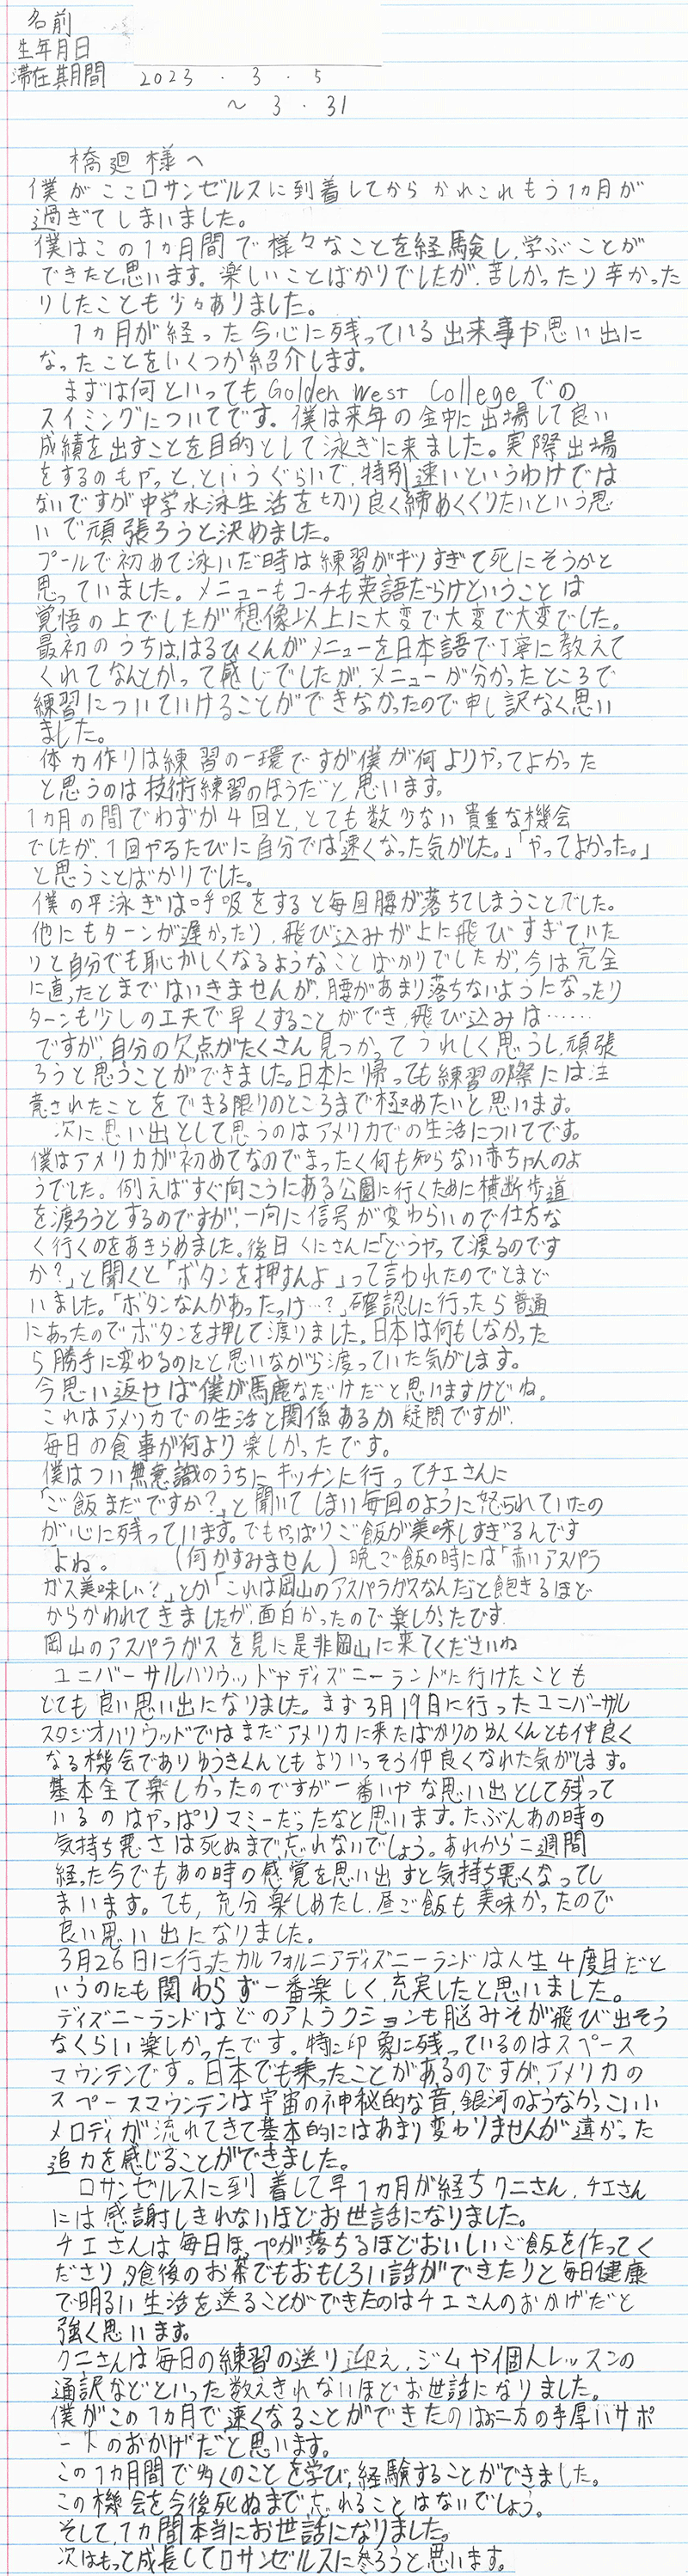 名前
生年月日
滞在期間 2023.3.5
～3.31
橋廻様へ
僕がここロサンゼルスに到着してからかれこれもう1ヵ月が
過ぎてしまいました。
僕はこの1ヵ月間で様々なことを経験し、学ぶことが
できたと思います。楽しいことばかりでしたが、苦しかったり辛かった
りしたことも少々ありました。
1ヵ月が経った今心に残っている出来事や思い出に
なったことをいくつか紹介します。
まずは何といってもGolden West Collegeでの
スイミングについてです。僕は来年の全中に出場して良い
成績を出すことを目的として泳ぎに来ました。実際出場
をするのもやっと、というぐらいで、特別速いというわけでは
ないですが中学水泳生活を切り良く締めくくりたいという思
いで頑張ろうと決めました。
プールで初めて泳いだ時は練習がキツすぎて死にそうかと
思っていました。メニューもコーチも英語だらけということは
覚悟の上でしたが想像以上に大変で大変で大変でした。
最初のうちは、はるひくんがメニューを日本語で丁寧に教えて
くれてなんとかって感じでしたが、メニューが分かったところで
練習についていけることができなかったので申し訳なく思い
ました。
体力作りは練習の一環ですが僕が何よりやってよかった
と思うのは技術練習のほうだと思います。
1ヵ月の間でわずか4回と、とても数少ない貴重な機会
でしたが、1回やるたびに自分では「速くなった気がした。」「やってよかった。」
と思うことばかりでした。
僕の平泳ぎは呼吸をすると毎回腰が落ちてしまうことでした。
他にもターンが遅かったり、飛び込みが上に飛びすぎていた
りと自分でも恥かしくなるようなことばかりでしたが、今は完全
に直ったとまではいきませんが、腰があまり落ちないようになったり
ターンも少しの工夫で早くすることができ、飛び込みは……
ですが、自分の欠点がたくさん見つかってうれしく思うし、頑張
ろうと思うことができました。日本に帰っても練習の際には注
意されたことをできる限りのところまで極めたいと思います。
次に思い出として思うのはアメリカでの生活についてです。
僕はアメリカが初めてなのでまったく何も知らない赤ちゃんのよ
うでした。例えばすぐ向こうにある公園に行くために横断歩道
を渡ろうとするのですが、一向に信号が変わらいので仕方な
く行くのをあきらめました。後日くにさんに「どうやって渡るのです
か？」と聞くと「ボタンを押すんよ」って言われたのでとまど
いました。「ボタンなんかあったっけ…？」確認しに行ったら普通
にあったのでボタンを押して渡りました。日本は何もしなかった
ら勝手に変わるのにと思いながら渡っていた気がします。
今思い返せば僕が馬鹿なだけだと思いますけどね。
これはアメリカでの生活と関係あるか疑問ですが、
毎日の食事が何より楽しかったです。
僕はつい無意識のうちにキッチンに行ってチエさんに
「ご飯まだですか？」と聞いてしまい毎回のように怒られていたの
が心に残っています。でもやっぱりご飯が美味しすぎるんです
よね。(何かすみません)晩ご飯の時には「赤いアスパラ
ガス美味しい？」とか「これは岡山のアスパラガスなんだ」と飽きるほど
からかわれてきましたが、面白かったので楽しかったです。
岡山のアスパラガスを見に是非岡山に来てくださいね
ユニバーサルハリウッドやディズニーランドに行けたことも
とても良い思い出になりました。まず3月19日に行ったユニバーサル
スタジオハリウッドではまだアメリカに来たばかりのめんくんとも仲良く
なる機会でありゆうきくんともよりいっそう仲良くなれた気がします。
基本全て楽しかったのですが一番いやな思い出として残って
いるのはやっぱりマミーだったなと思います。たぶんあの時の
気持ち悪さは死ぬまで忘れないでしょう。あれから二週間
経った今でもあの時の感覚を思い出すと気持ち悪くなってし
まいます。ても、充分楽しめたし、昼ご飯も美味かったので
良い思い出になりました。
3月26日に行ったカルフォルニアディズニーランドは人生4度目だと
いうのにも関わらず一番楽しく、充実したと思いました。
ディズニーランドはどのアトラクションも脳みそが飛び出そう
なくらい楽しかったです。特に印象に残っているのはスペース
マウンテンです。日本でも乗ったことがあるのですが、アメリカの
スペースマウンテンは宇宙の神秘的な音、銀河のようなかっこいい
メロディが流れてきて基本的にはあまり変わりませんが違がった
迫力を感じることができました。
ロサンゼルスに到着して早1ヵ月が経ちクニさん、チエさん
には感謝しきれないほどお世話になりました。
チエさんは毎日ほっぺが落ちるほどおいしいご飯を作ってく
ださり、夕食後のお茶でもおもしろい話ができたりと毎日健康
で明るい生活を送ることができたのはチエさんのおかげだと
強く思います。
クニさんは毎日の練習の送り迎え、ジムや個人レッスンの
通訳などといった数えきれないほどお世話になりました。
僕がこの1ヵ月で速くなることができたのはお二方の手厚いサポ
ートのおかげだと思います。
この1ヵ月間で多くのことを学び、経験することができました。
この機会を今後死ぬまで忘れることはないでしょう。
そして、1ヵ間本当にお世話になりました。
次はもっと成長してロサンゼルスに参ろうと思います。